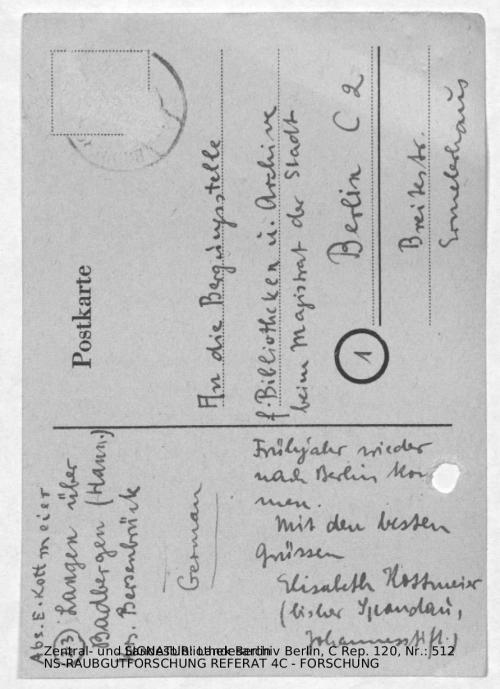 Postkarte
An die Bergungsstelle
f. Bibliotheken u. Archive
beim Magistrat der Stadt
Berlin C 2
1
Breitestr.
Ermelerhaus
Abs. E. Kottmeier
(23) Langen über
Badbergen (Hann.)
Bersenbrück
German
Frühjahr wieder
nach Berlin kom-
men.
Mit den besten
Grüssen
Elisabeth Kottmeier
(bisher Spandau,
Johannesstift.)
Zentral- und Landesbibliothek Berlin
SIGNATUR: Landesarchiv Berlin, C Rep. 120, Nr.: 512
NS-RAUBGUTFORSCHUNG REFERAT 4C - FORSCHUNG